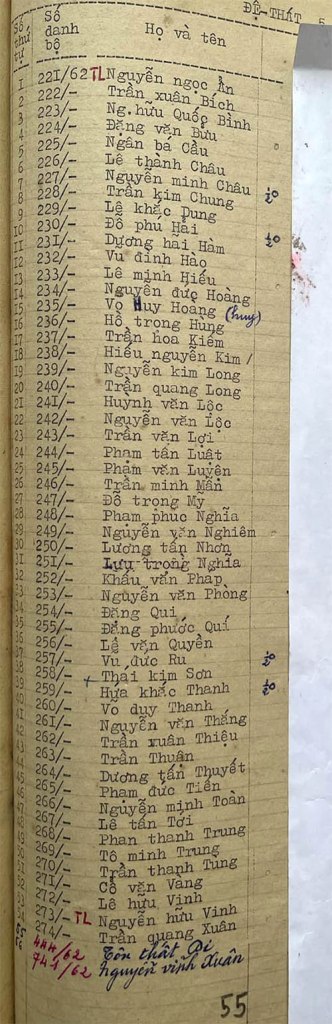 ĐỆ-THẤT 5
Số thứ tự Số danh bộ Họ và tên
1 221/62 TL Nguyễn ngọc Ẩn
2 222/- Trần xuân Bích
3 223/- Ng.hữu Quốc Bình
4 224/- Đặng văn Bửu
5 225/- Ngân bá Cầu
6 226/- Lê thành Châu
7 227/- Nguyễn minh Châu
8 228/- Trần kim Chung
9 229/- Lê khắc Dung
10 230/- Đỗ phú Hải
11 231/- Dương hải Hàm
12 232/- Vũ đình Hào
13 233/- Lê minh Hiếu
14 234/- Nguyễn đức Hoàng
15 235/- Võ Huy Hoàng (huy)
16 236/- Hồ trong Hùng
17 237/- Trần hoa Kiểm
18 238/- Hiếu nguyễn Kim /
19 239/- Nguyễn kim Long
20 240/- Trần quang Long
21 241/- Huỳnh văn Lộc
22 242/- Nguyễn văn Lộc
23 243/- Trần văn Lợi
24 244/- Phạm tấn Luật
25 245/- Phạm văn Luyện
26 246/- Trần minh Mẫn
27 247/- Đỗ trọng Mỹ
28 248/- Phạm phúc Nghĩa
29 249/- Nguyễn văn Nghiêm
30 250/- Lương tấn Nhơn
31 251/- Lưu trọng Nghĩa
32 252/- Khấu văn Pháp
33 253/- Nguyễn văn Phòng
34 254/- Đặng Quí
35 255/- Đặng phước Quí
36 256/- Lê văn Quyền
37 257/- Vũ đức Ru
38 258/- + Thái kim Sơn
39 259/- Hứa khắc Thanh
40 260/- Võ duy Thanh
261/- Nguyễn văn Thắng
262/- Trần xuân Thiệu
263/- Trần Thuận
264/- Dương tấn Thuyết
265/- Phạm đức Tiến
266/- Nguyễn minh Toàn
267/- Lê tấn Tới
268/- Phan thanh Trung
269/- Tô minh Trung
270/- Trần thanh Tùng
271/- Cồ văn Vàng
272/- Lê hữu Vinh
273/- TL Nguyễn hữu Vinh
274/- Trần quang Xuân
444/62 Tôn thất Di
741/62 Nguyễn vĩnh Xuân
55